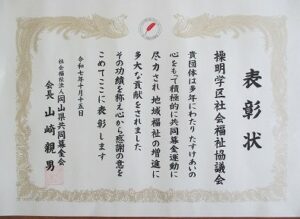 表彰状
操明学区社会福祉協議会
貴団体は多年にわたりたすけあいの
心をもって積極的に共同募金運動に
尽力され地域福祉の増進に
多大な貢献をされました
その功績を称え心から感謝の意を
こめてここに表彰します
令和七年十月十五日
社会福祉法人岡山県共同募金会
会長 山崎親男